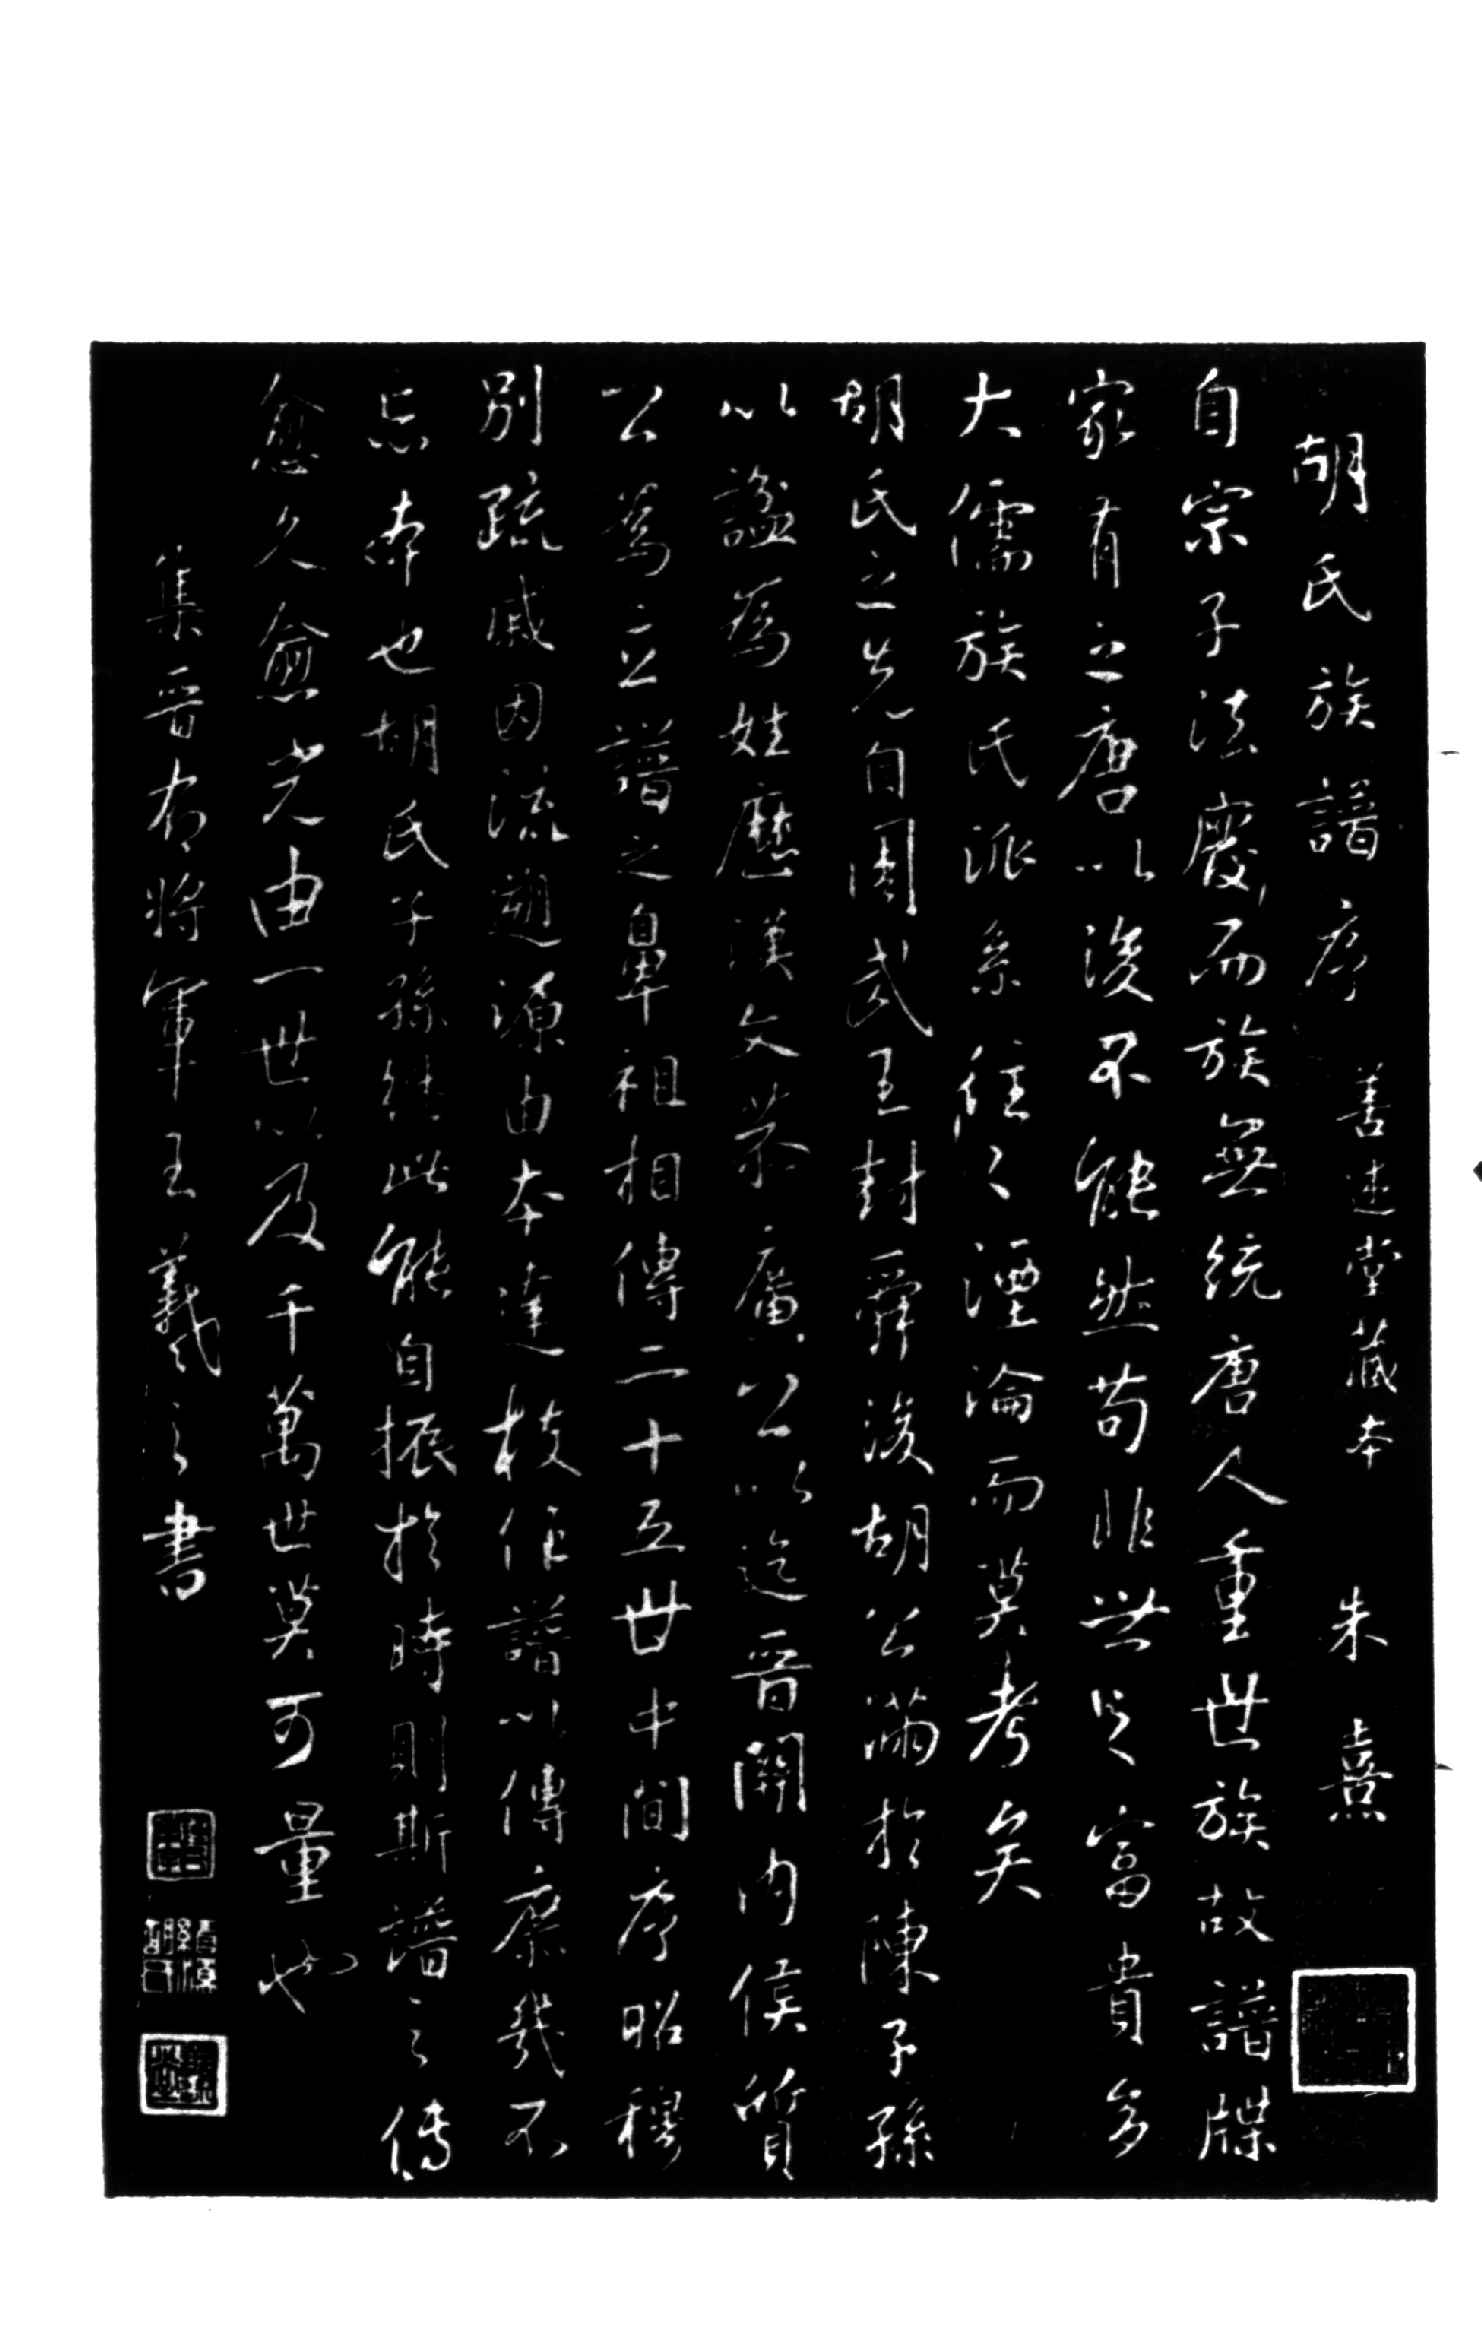 胡氏族譜序 善連堂藏本 朱熹
自宗子法廢而族無統唐人重世族故譜牒
家有之唐以後不能然苟非世以富貴多
大儒族氏派系往々湮淪而莫考矣
胡氏之先自周武王封舜後胡公滿於陳子孫
以謚為姓歷漢文恭廣公以迄晉關內侯質
公為立譜之鼻祖相傳二十五世中間序昭穆
別疏戚因流遡源由本達枝作譜以傳庶幾不
忘本也胡氏子孫繼此能自振於時則斯譜之傳
愈久愈光由一世以及千萬世莫可量也
集晉右將軍王羲之書